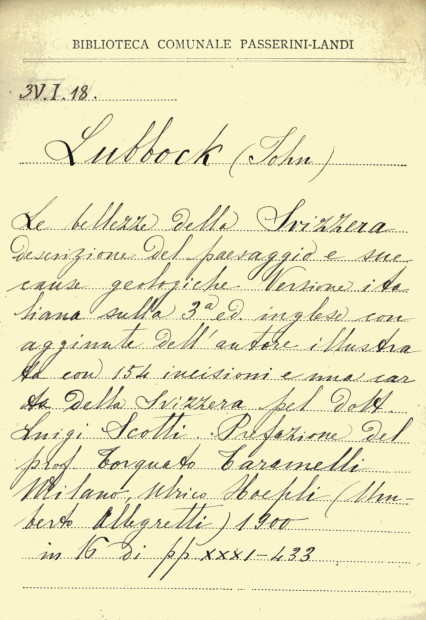 BIBLIOTECA COMUNALE PASSERINI-LANDI
3V.I.18.
Lubbock (John)
Le bellezze della Svizzera
descrizione del paesaggio e sue
cause geologiche. Versione ita
liana sulla 3ª ed. inglese con
aggiunte dell'autore illustra
ta con 154 incisioni e una car
ta della Svizzera pel dott
Luigi Scotti. Prefazione del
prof Torquato Taramelli
Milano, Ulrico Hoepli (Um-
berto Allegretti) 1900
in 16 di pp XXXI-433